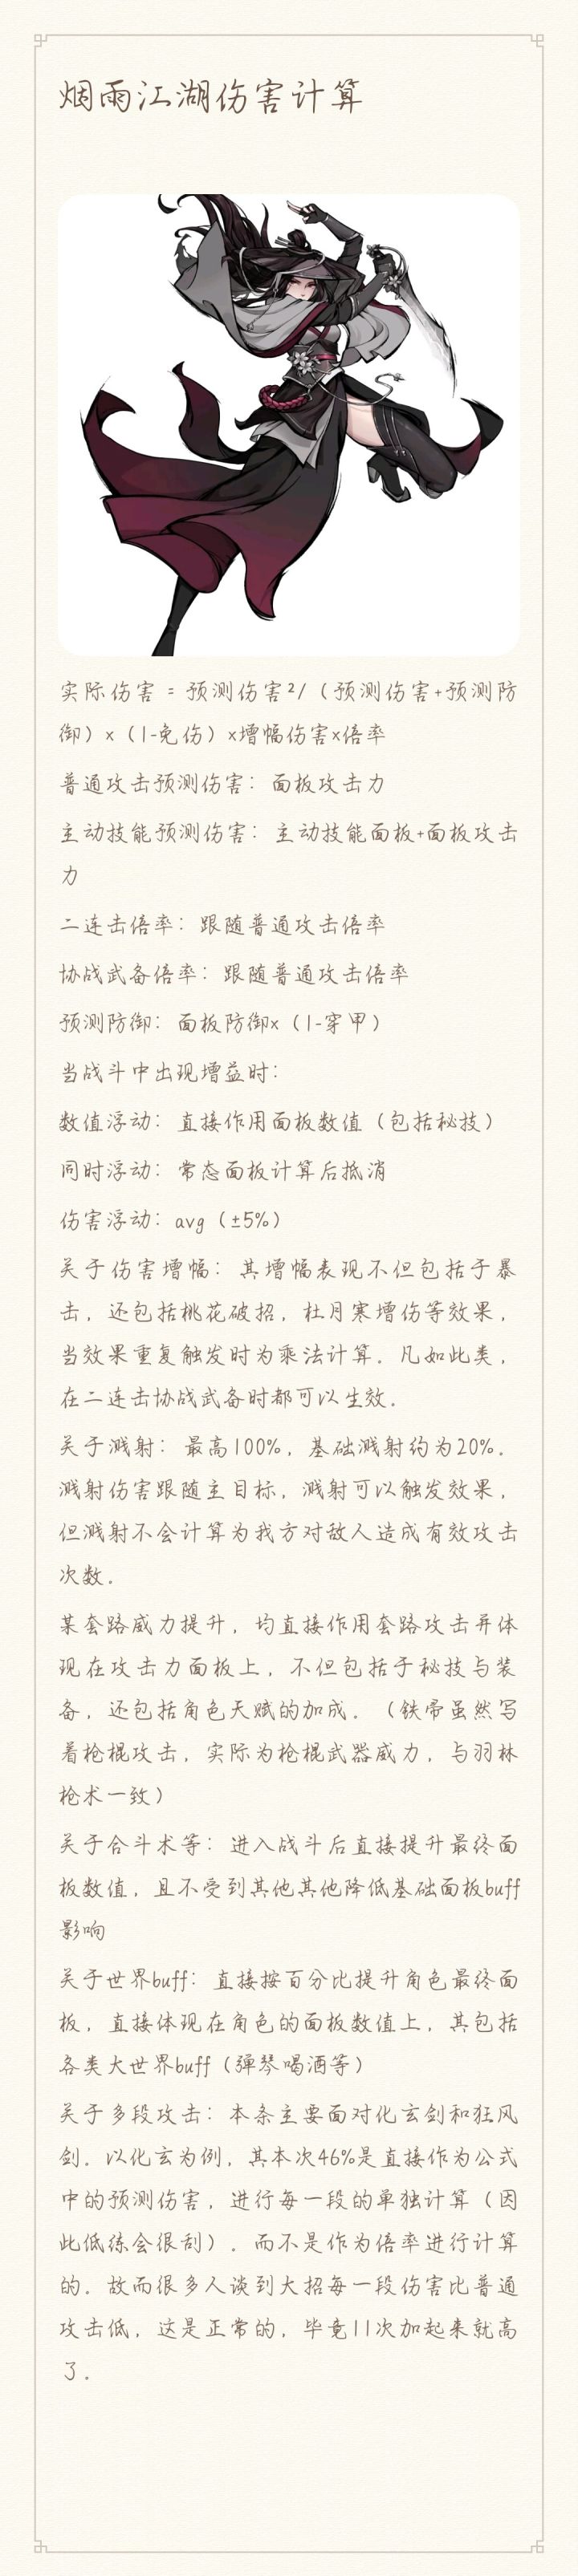 烟雨江湖伤害计算
实际伤害 = 预测伤害²/（预测伤害+预测防
御）×（1-免伤）×增幅伤害×倍率
普通攻击预测伤害：面板攻击力
主动技能预测伤害：主动技能面板+面板攻击
力
二连击倍率：跟随普通攻击倍率
协战武备倍率：跟随普通攻击倍率
预测防御：面板防御×（1-穿甲）
当战斗中出现增益时：
数值浮动：直接作用面板数值（包括秘技）
同时浮动：常态面板计算后抵消
伤害浮动：avg（±5%）
关于伤害增幅：其增幅表现不但包括于暴
击，还包括桃花破招，杜月寒增伤等效果，
当效果重复触发时为乘法计算。凡如此类，
在二连击协战武备时都可以生效。
关于溅射：最高100%，基础溅射约为20%。
溅射伤害跟随主目标，溅射可以触发效果，
但溅射不会计算为我方对敌人造成有效攻击
次数。
某套路威力提升，均直接作用套路攻击并体
现在攻击力面板上，不但包括于秘技与装
备，还包括角色天赋的加成。（铁帝虽然写
着枪棍攻击，实际为枪棍武器威力，与羽林
枪术一致）
关于合斗术等：进入战斗后直接提升最终面
板数值，且不受到其他其他降低基础面板buff
影响
关于世界buff：直接按百分比提升角色最终面
板，直接体现在角色的面板数值上，其包括
各类大世界buff（弹琴喝酒等）
关于多段攻击：本条主要面对化玄剑和狂风
剑。以化玄为例，其本次46%是直接作为公式
中的预测伤害，进行每一段的单独计算（因
此低练会很刮）。而不是作为倍率进行计算
的。故而很多人谈到大招每一段伤害比普通
攻击低，这是正常的，毕竟11次加起来就高
了。